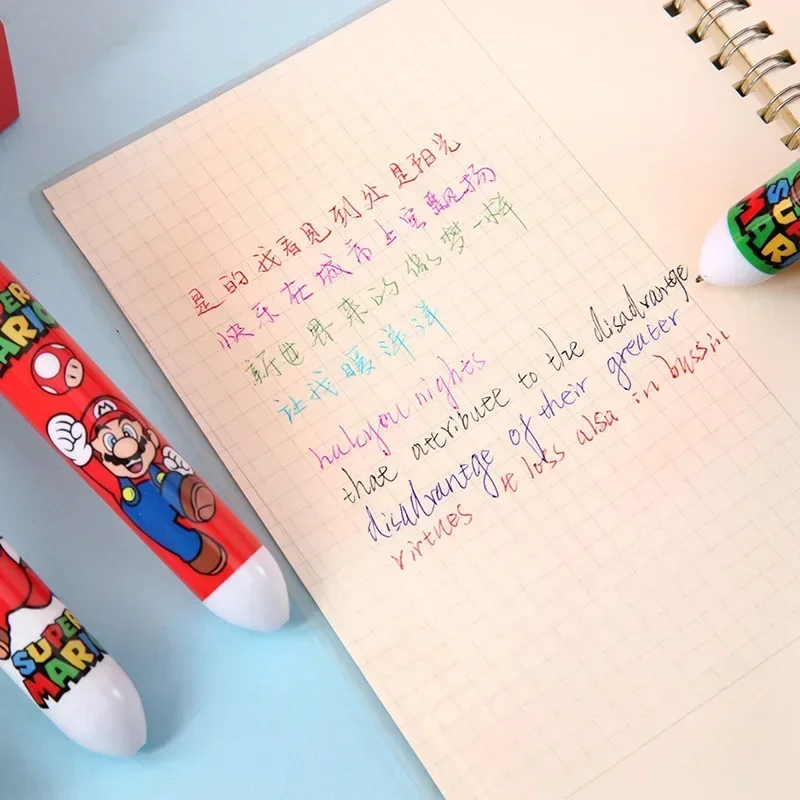 是的我看见到处是阳光
快乐在城市上空飘扬
新世界来的像梦一样
让我暖洋洋
halcyou nights
that attribute to the disadvantge
disadvantge of their greater
virtues it loss also in bussin
SUPER
MARIO
SUPER
MARIO
SUPER
MAR